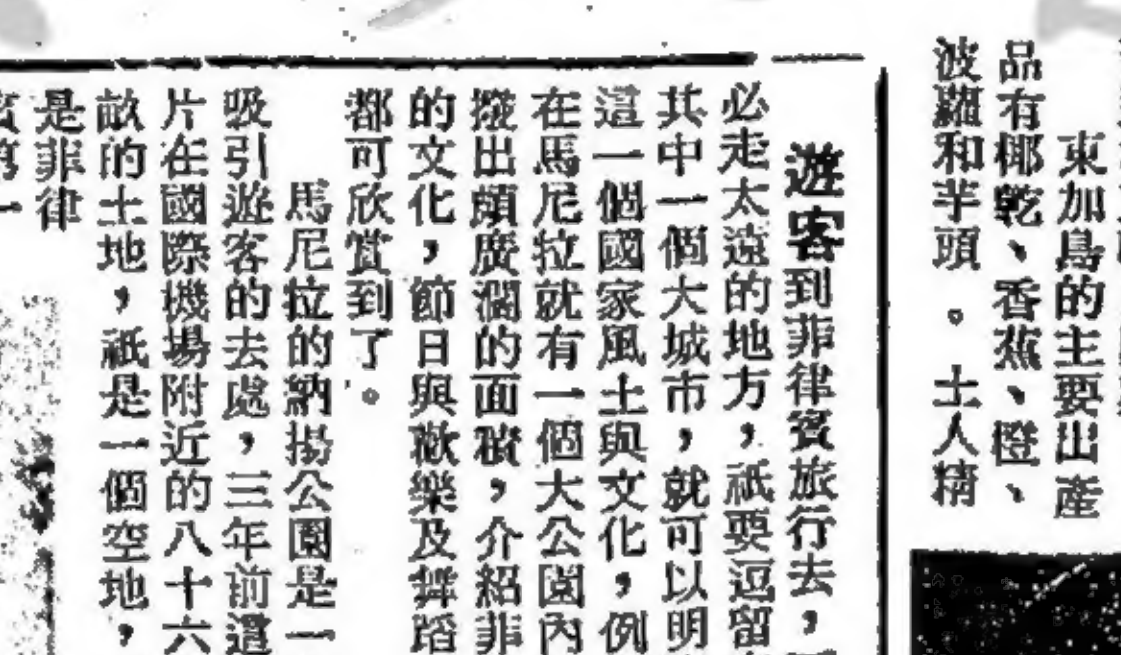 東加島的主要出產
品有椰乾、香蕉、橙、
波蘿和芋頭。土人精
遊客到菲律賓旅行去，
必走太遠的地方，祇要逗留
其中一個大城市，就可以明
這一個國家風土與文化，例
在馬尼拉就有一個大公園內
撥出頗廣濶的面積，介紹菲
的文化，節日與歡樂及舞蹈
都可欣賞到了。
馬尼拉的納揚公園是一
吸引遊客的去處，三年前還
片在國際機場附近的八十六
畝的土地，祇是一個空地，
是菲律
第一